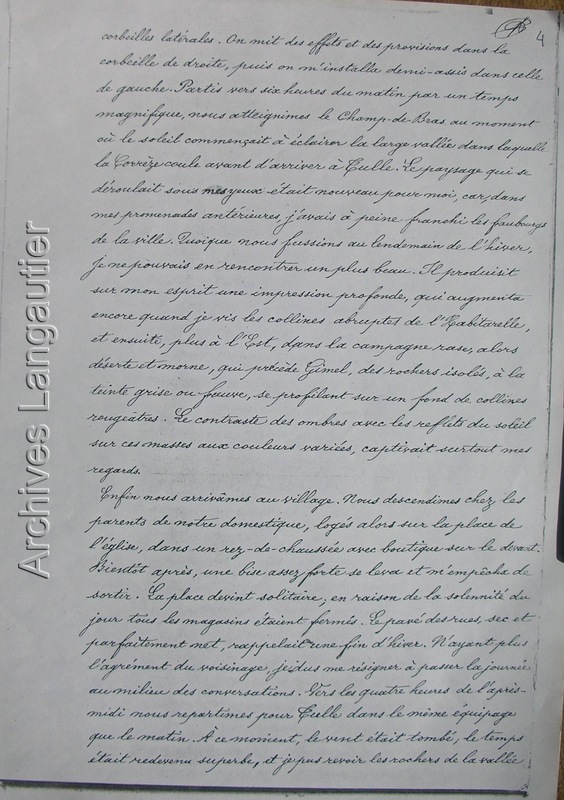 4
corbeilles latérales. On mit des effets et des provisions dans la
corbeille de droite, puis on m'installa demi-assis dans celle
de gauche. Partis vers six heures du matin par un temps
magnifique, nous atteignîmes le Champ-de Bras au moment
où le soleil commençait à éclairer la large vallée dans laquelle
la Corrèze coule avant d'arriver à Tulle. Le paysage qui se
déroulait sous mes yeux était nouveau pour moi, car, dans
mes promenades antérieures, j'avais à peine franchi les faubourgs
de la ville. Quoique nous fussions au lendemain de l'hiver,
je ne pouvais en rencontrer un plus beau. Il produisit
sur mon esprit une impression profonde, qui augmenta
encore quand je vis les collines abruptes de l'Habitarelle,
et ensuite, plus à l'Est, dans la campagne rase, alors
déserte et morne, qui précède Gimel, des rochers isolés, à la
teinte grise ou fauve, se profilant sur un fond de collines
rougeâtres. Le contraste des ombres avec les reflets du soleil
sur ces masses aux couleurs variées, captivait surtout mes
regards.
Enfin nous arrivâmes au village. Nous descendîmes chez les
parents de notre domestique, logés alors sur la place de
l'église, dans un rez-de-chaussée avec boutique sur le devant.
Bientôt après, une bise assez forte se leva et m'empêcha de
sortir. La place devint solitaire; en raison de la solennité du
jour tous les magasins étaient fermés. Le pavé des rues, sec et
parfaitement net, rappelait une fin d'hiver. N'ayant plus
l'agrément du voisinage, je dus me résigner à passer la journée
au milieu des conversations. Vers les quatre heures de l'après-
midi nous repartîmes pour Tulle dans le même équipage
que le matin. À ce moment, le vent était tombé; le temps
était redevenu superbe, et je pus revoir les rochers de la vallée
Archives Langautier